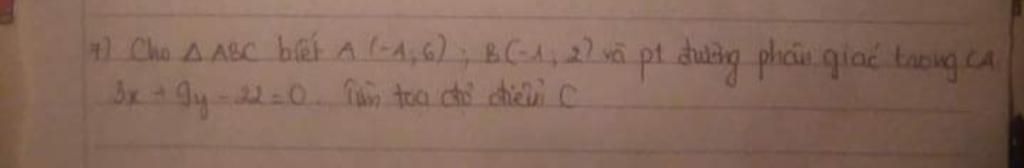 7) Cho △ ABC biết A (-1; 6) ; B(-1; 2) và pt đường phân giác trong CA
3x + 9y - 22 = 0. Tìm tọa độ điểm C